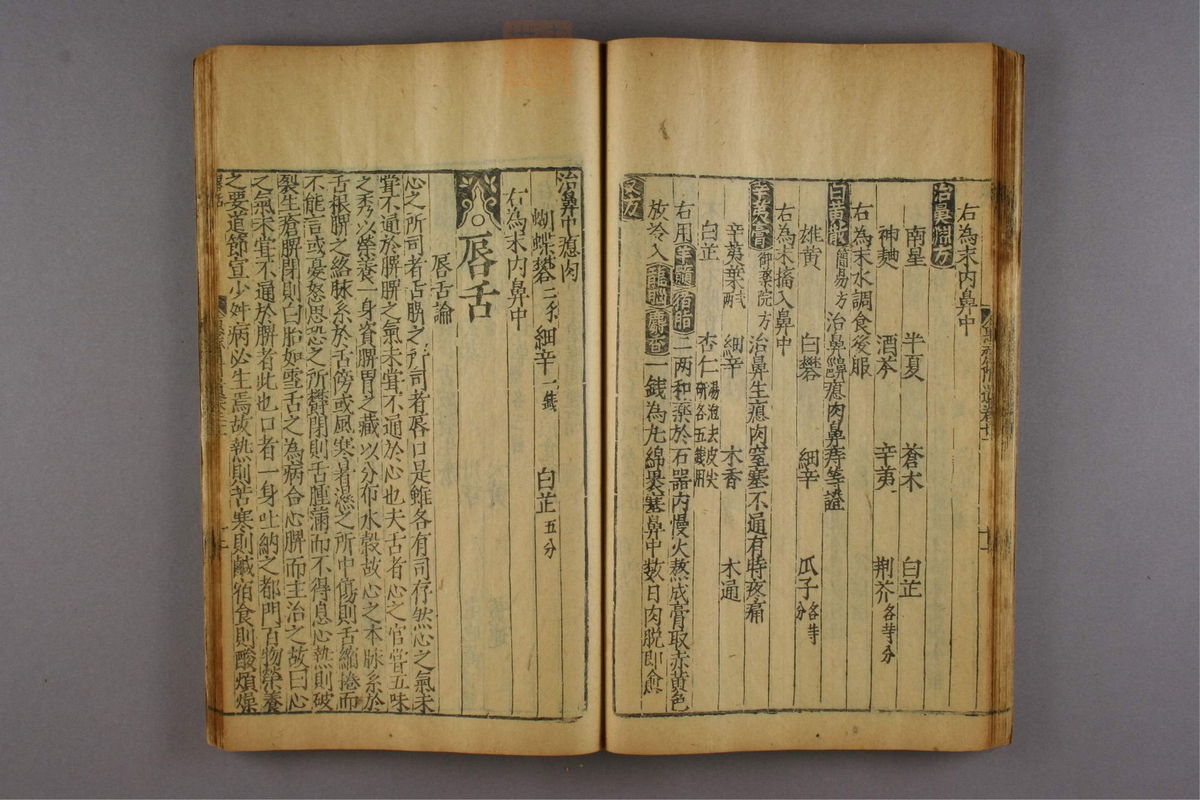 右為末内鼻中
治鼻痔方
南星 半夏 蒼木 白芷
神麯 酒芩 辛夷 荆芥各等分
右為末水調食後服
白黄散簡易方治鼻齆瘜肉鼻痔等證
雄黄 白礬 細辛 瓜子各等分
右為末搐入鼻中
辛夷膏御藥院方治鼻生瘜肉窒塞不通有時疼痛
辛夷葉二兩 細辛 木香 木通
白芷 杏仁湯泡去皮尖研各五錢
右用羊髓猪脂二两和藥於石器内慢火熬成膏取赤黄色
放冷入龍腦麝香一錢為丸綿裹塞鼻中数日肉脱即愈
又方
治鼻中瘜肉
蝴蝶礬二錢 細辛一錢 白芷五分
右為末内鼻中
唇舌
唇舌論
心之所司者舌脾之所司者唇口是雖各有司存然心之氣未
甞不通於脾脾之氣未甞不通於心也夫舌者心之官甞五味
之秀以榮養一身資脾胃之藏以分布水穀故心之本脉系於
舌根脾之絡脉系於舌傍或風寒暑濕之所中傷則舌縮捲而
不能言或憂怒思恐之所鬱閉則舌腫滿而不得息心熱則破
裂生瘡脾閉則白胎如雪舌之為病合心脾而主治之故曰心
之氣未甞不通於脾者此也口者一身吐納之都門百物榮養
之要道節宣少舛病必生焉故熱則苦寒則鹹宿食則酸煩燥